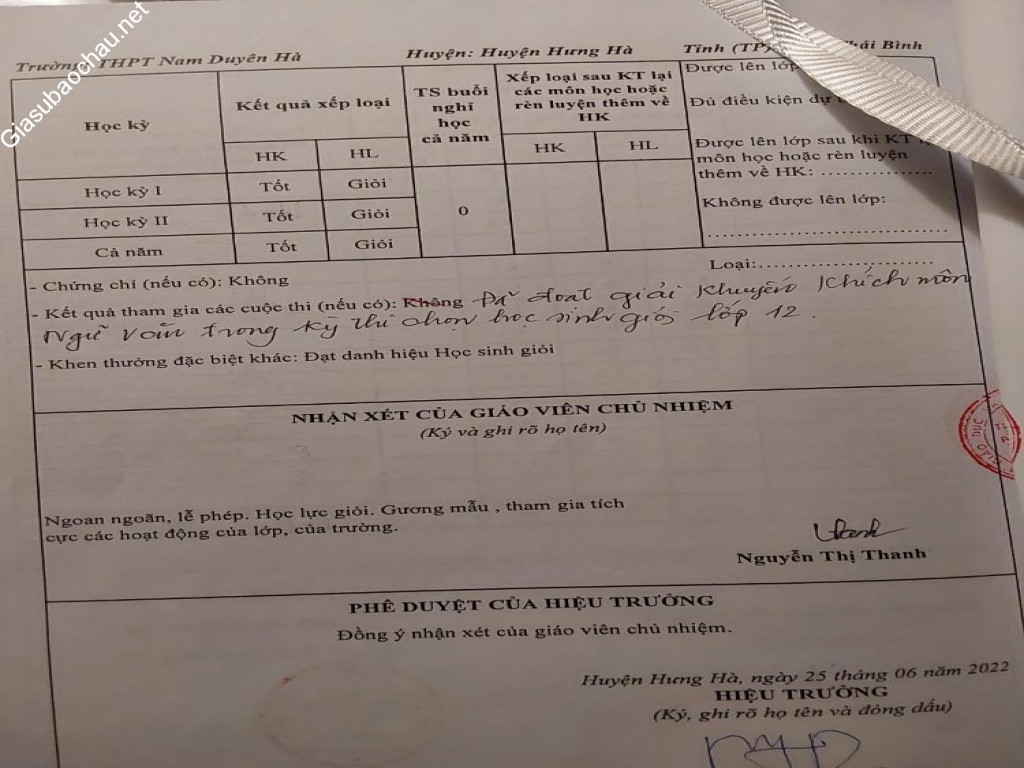 Giasubaochau.net
Trường: THPT Nam Duyên Hà Huyện: Huyện Hưng Hà Tỉnh (TP) Thái Bình
Học kỳ
Kết quả xếp loại
HK HL
TS buổi
nghỉ
học
cả năm
Xếp loại sau KT lại
các môn học hoặc
rèn luyện thêm về
HK
HK HL
Được lên lớp
Đủ điều kiện dự
Được lên lớp sau khi KT
môn học hoặc rèn luyện
thêm về HK: ................
Không được lên lớp:
................................
Loại:........................
Học kỳ I Tốt Giỏi
Học kỳ II Tốt Giỏi 0
Cả năm Tốt Giỏi
- Chứng chỉ (nếu có): Không
- Kết quả tham gia các cuộc thi (nếu có): Không Đã đoạt giải Khuyến khích môn
Ngữ văn trong kỳ thi chọn học sinh giỏi lớp 12.
- Khen thưởng đặc biệt khác: Đạt danh hiệu Học sinh giỏi
NHẬN XÉT CỦA GIÁO VIÊN CHỦ NHIỆM
(Ký và ghi rõ họ tên)
Ngoan ngoãn, lễ phép. Học lực giỏi. Gương mẫu , tham gia tích
cực các hoạt động của lớp, của trường.
Thanh
Nguyễn Thị Thanh
PHÊ DUYỆT CỦA HIỆU TRƯỞNG
Đồng ý nhận xét của giáo viên chủ nhiệm.
Huyện Hưng Hà, ngày 25 tháng 06 năm 2022
HIỆU TRƯỞNG
(Ký, ghi rõ họ tên và đóng dấu)